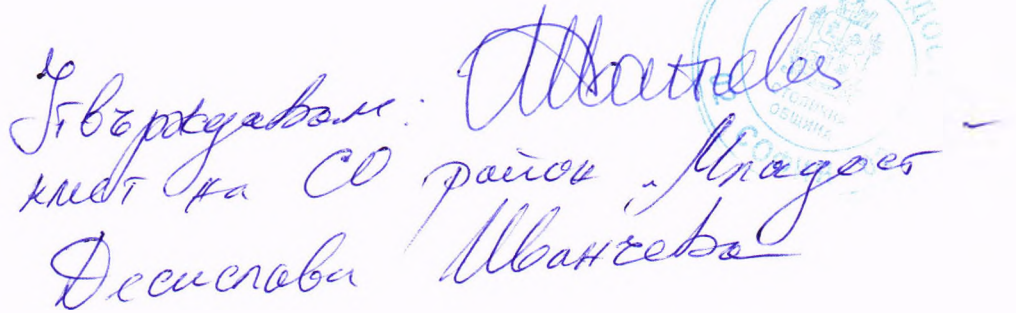 Утвърждавам:
кмет на СО район „Младост"
Десислава Иванчева
СТОЛИЧНА
ОБЩИНА